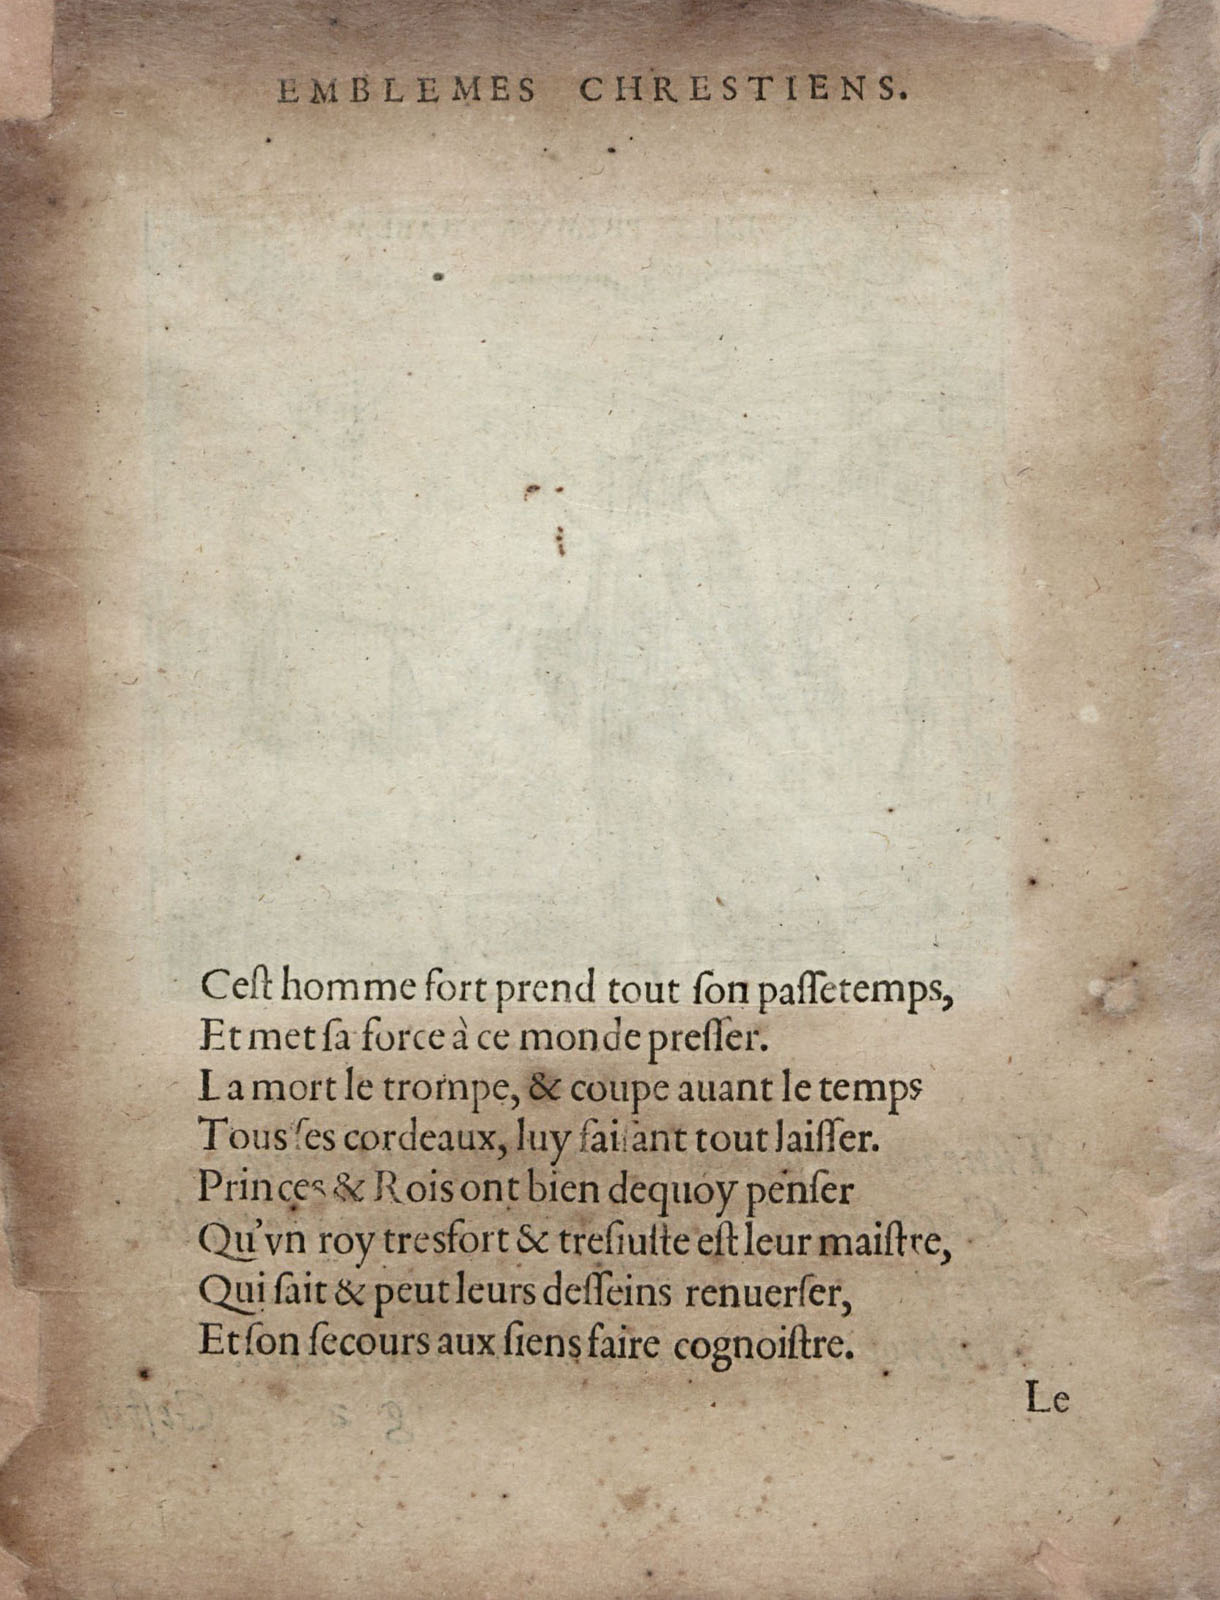 EMBLEMES CHRESTIENS.
Ceſt homme fort prend tout ſon paſſetemps,
Et met ſa force à ce monde preſſer.
La mort le trompe, & coupe auant le temps
Tous ſes cordeaux, luy faiſant tout laiſſer.
Princes & Rois ont bien dequoy penſer
Qu'vn roy tresfort & treſiuſte eſt leur maiſtre,
Qui ſait & peut leurs deſſeins renuerſer,
Et ſon ſecours aux ſiens faire cognoiſtre.
Le